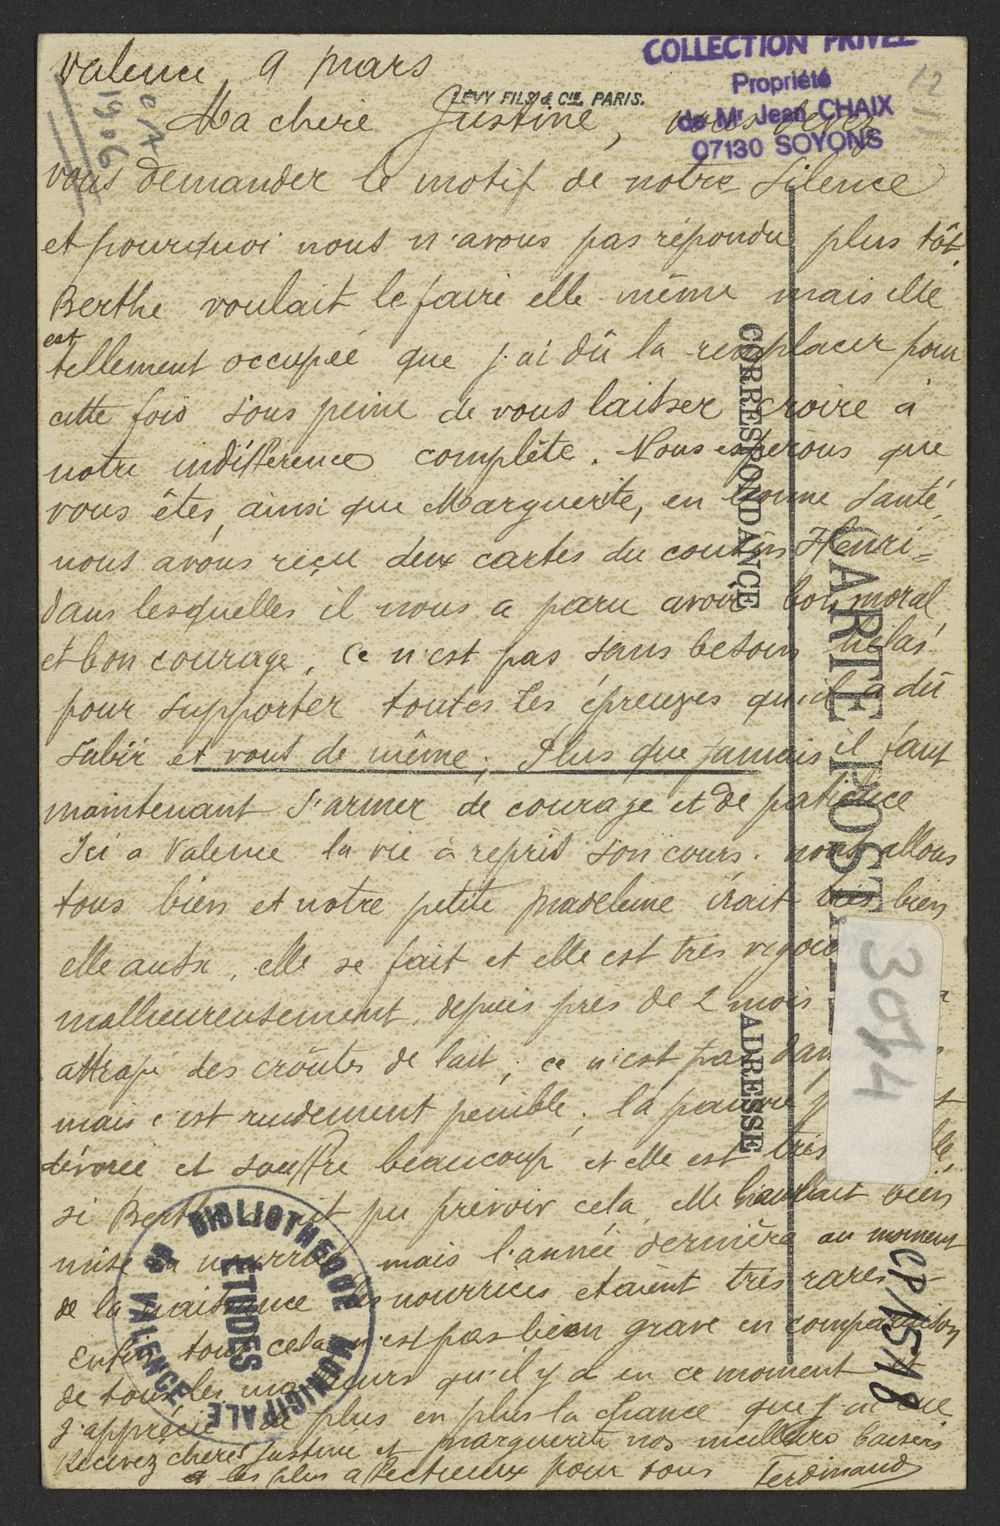 Valence, 9 mars
Ma chère Justine, vous devez
vous demander le motif de notre silence
et pourquoi nous n'avons pas répondu plus tôt.
Berthe voulait le faire elle même mais elle
est tellement occupée que j'ai dû la remplacer pour
cette fois sous peine de vous laisser croire à
notre indifférence complète. Nous espérons que
vous êtes, ainsi que Marguerite, en bonne santé,
nous avons reçu deux cartes du cousin Henri -
dans lesquelles il nous a paru avoir bon moral
et bon courage, ce n'est pas sans besoin hélas!
pour supporter toutes les épreuves qu'il a dû
subir et vous de même; Plus que jamais il faut
maintenant s'armer de courage et de patience
Ici a Valence la vie à repris son cours. nous allons
tous bien et notre petite Madeleine irait très bien
elle aussi, elle se fait et elle est très
malheureusement, depuis près de 2 mois
attrapé des croûtes de lait, ce n'est pas
mais c'est rudement penible, la pauvre
dévorée et souffre beaucoup et elle est très
si Berthe avait pu prévoir cela, elle l'aurait bien
mise en nourrice, mais l'année dernière au moment
de la naissance les nourrices étaient très rares -
Enfin tout cela n'est pas bien grave en comparaison
de tous les malheurs qu'il y a en ce moment et
j'apprécie de plus en plus la chance que j'ai eue
Recevez chères Justine et Marguerite nos meilleurs baisers
et les plus affectueux pour tous Ferdinand
LEVY FILS & Cie, PARIS.
COLLECTION PRIVEE
Propriété
de Mr Jean CHAIX
07130 SOYONS
12
11
1906
CORRESPONDANCE
CARTE POSTALE
ADRESSE
3074
CP1518
BIBLIOTHEQUE MUNICIPALE
ETUDES
VALENCE